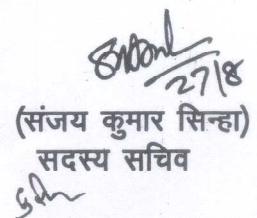 27/8
(संजय कुमार सिन्हा)
सदस्य सचिव